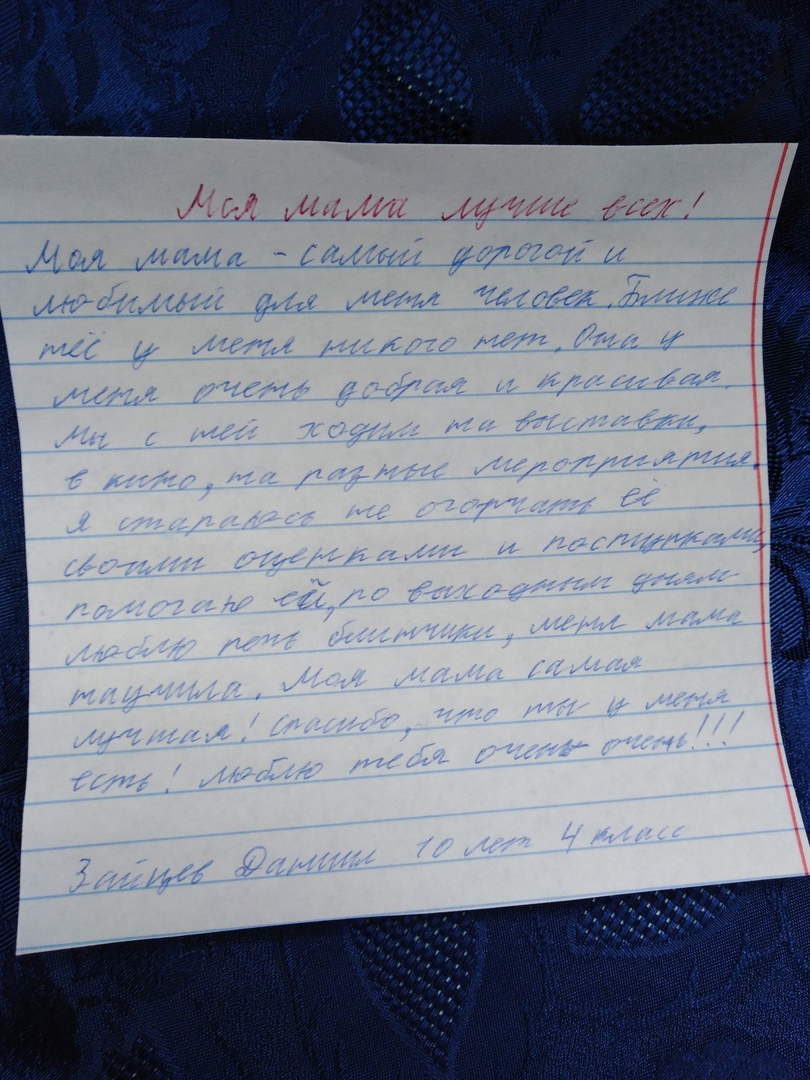 Моя мама лучше всех!
Моя мама - самый дорогой и
любимый для меня человек. Ближе
неё у меня никого нет. Она у
меня очень добрая и красивая.
Мы с ней ходим на выставки,
в кино, на разные мероприятия.
Я стараюсь не огорчать её
своими оценками и поступками,
помогаю ей, по выходным дням
люблю печь блинчики, меня мама
научила. Моя мама самая
лучшая! Спасибо, что ты у меня
есть! Люблю тебя очень очень!!!
Зайцев Даниил 10 лет 4 класс